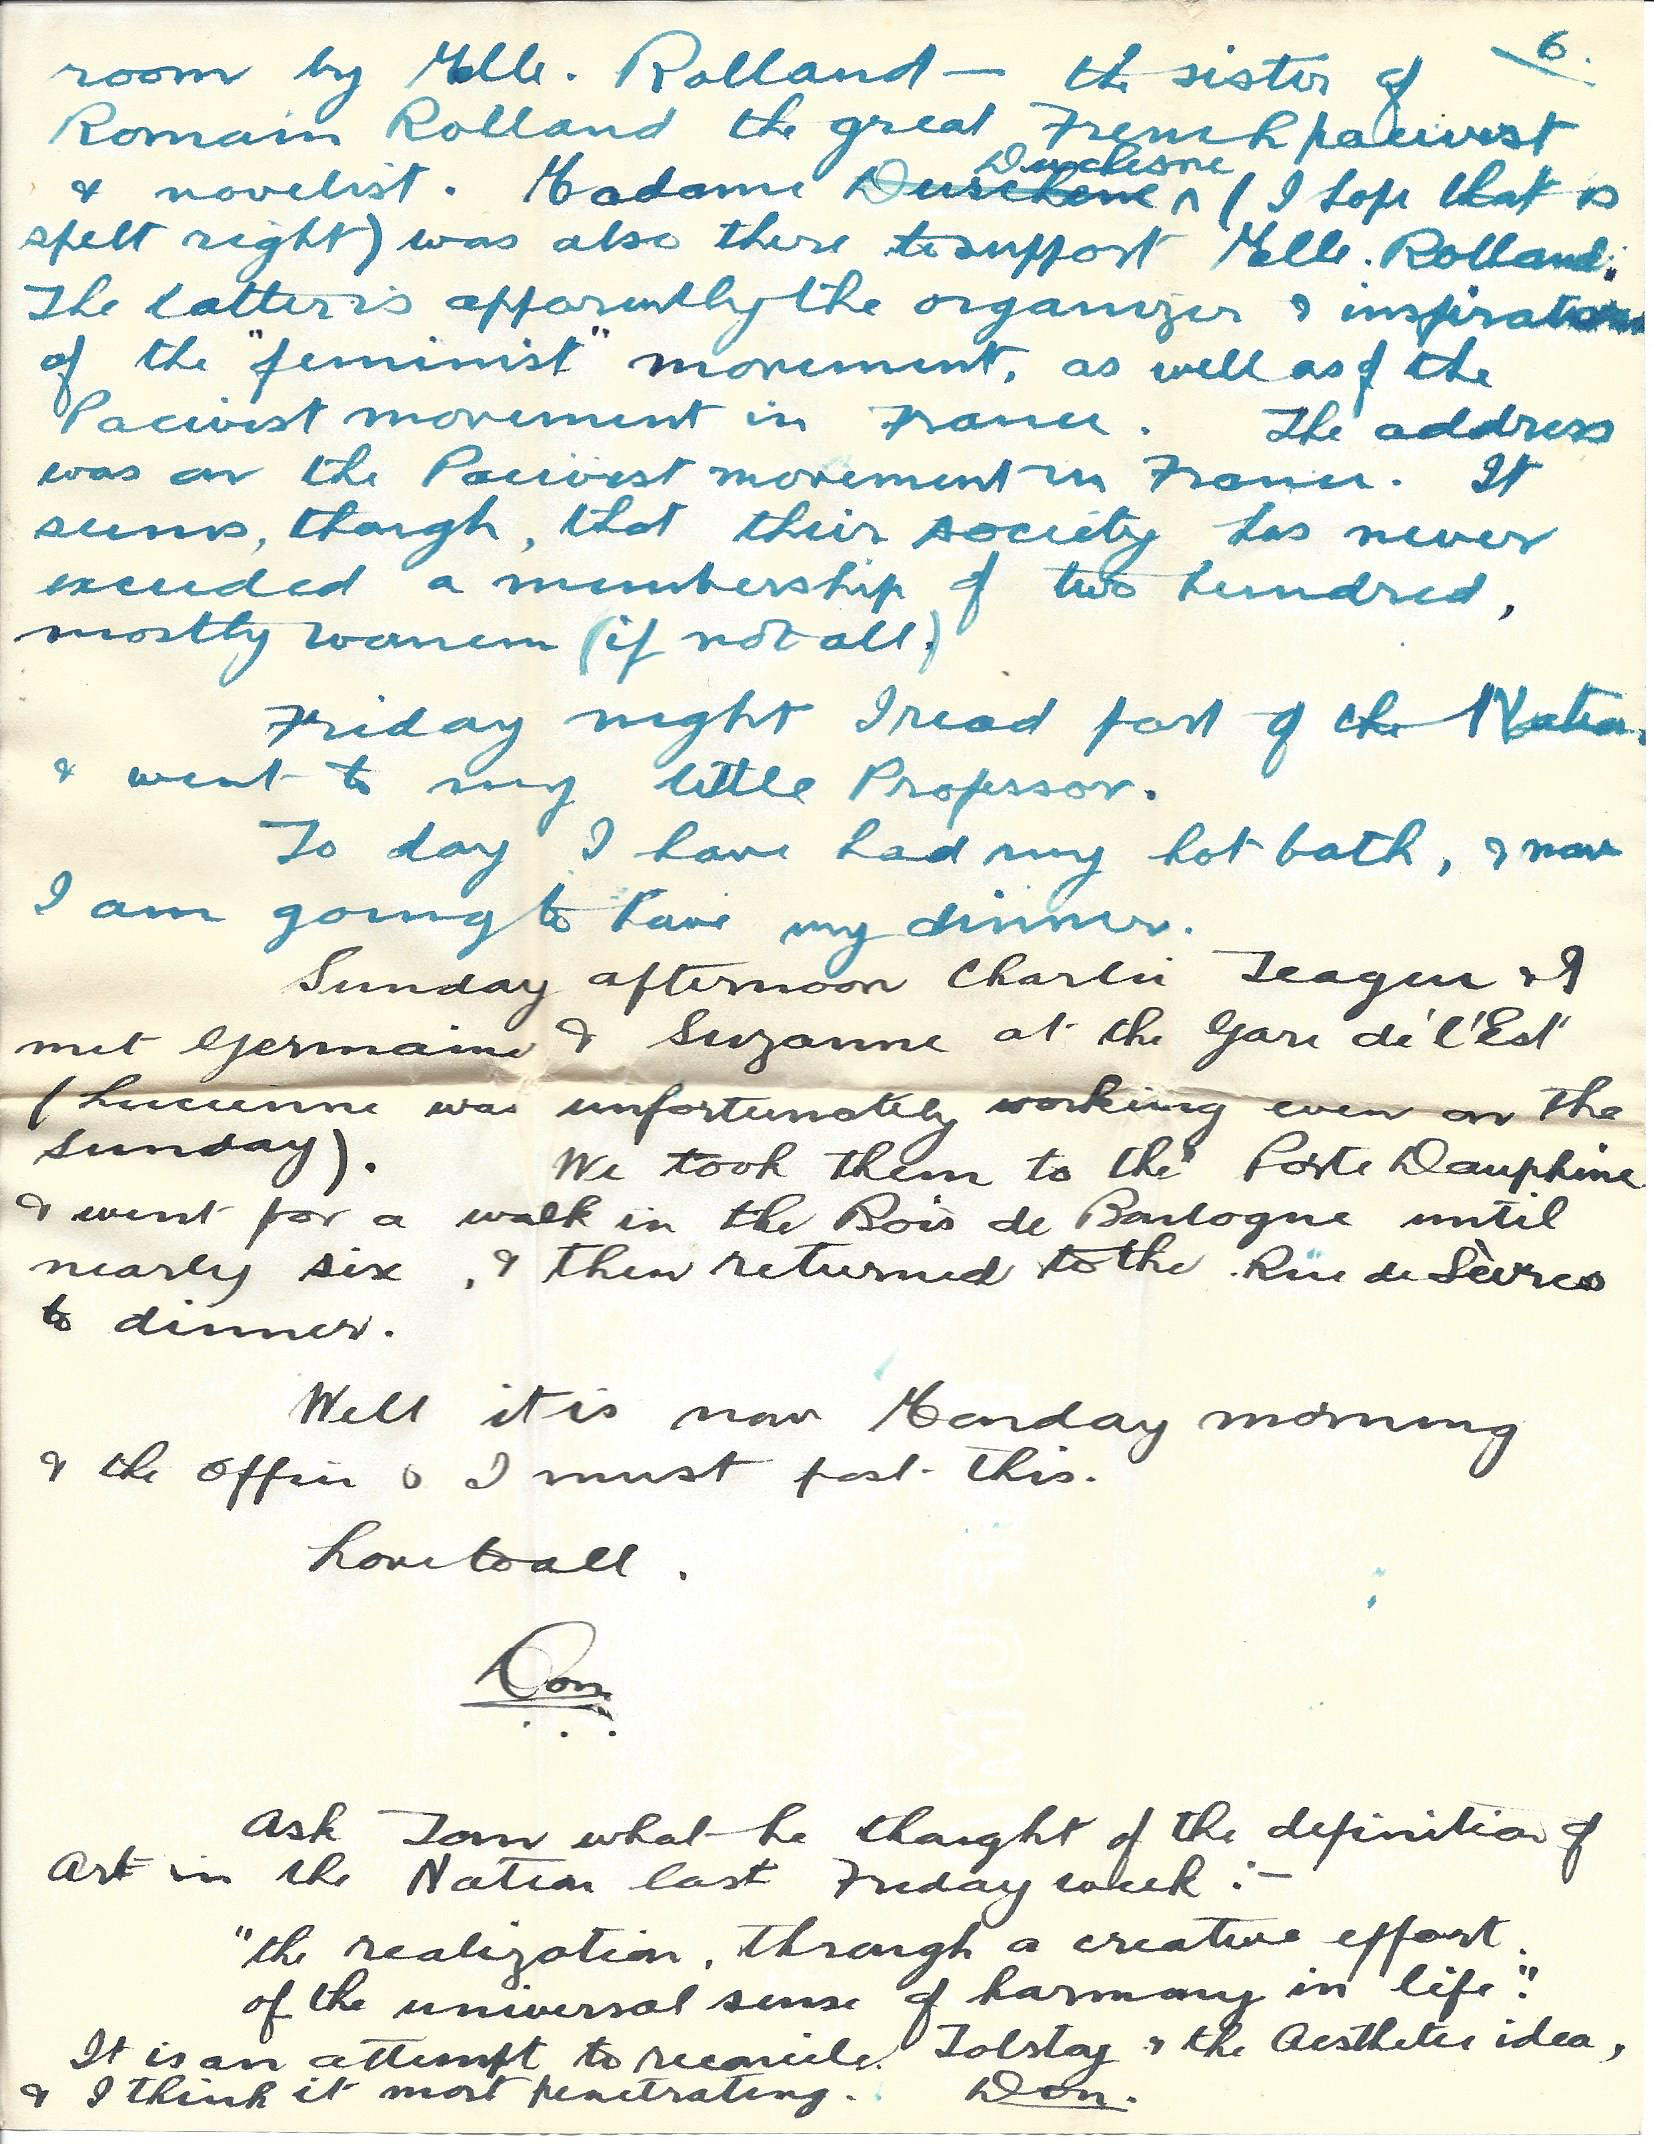 6.
room by Mlle. Rolland — the sister of
Romain Rolland the great French pacivist
& novelist. Madame Duschene Duschesne (I hope that is
spelt right) was also there to support Mlle. Rolland.
The latter is apparently the organizer & inspiration
of the "feminist" movement, as well as of the
Pacivist movement in France. The address
was on the Pacivist movement in France. It
seems, though, that their society has never
exceeded a membership of two hundred,
mostly women (if not all.)
Friday night I read part of the Nation,
& went to my little Professor.
To day I have had my hot bath, & now
I am going to have my dinner.
Sunday afternoon Charlie Teague & I
met Germaine & Suzanne at the Gare de l'Est
(Lucienne was unfortunately working even on the
Sunday). We took them to the Porte Dauphine
& went for a walk in the Bois de Boulogne until
nearly six, & then returned to the Rüe de Sèvres
to dinner.
Well it is now Monday morning
& the office & I must post this.
Love to all.
Don.
Ask Tom what he thought of the definition of
Art in the Nation last Friday week :—
"the realization, through a creative effort,
of the universal sense of harmony in life".
It is an attempt to reconcile Tolstoy & the Aesthetic idea,
& I think it most penetrating. Don.